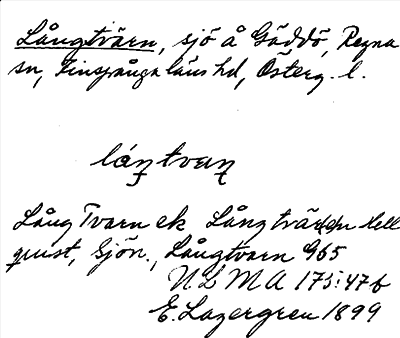 Långtvärn, sjö å Gäddö, Regna
sn, Finspånga läns hd, Österg. l.
Lång Tvarn ek Hell
quist, Sjön., Långtvarn 965
N L M A 175:476
E. Lagergren 1899